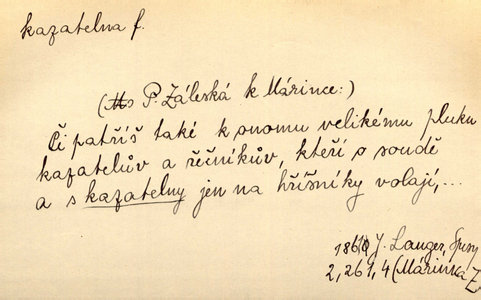 kazatelna f.
(P. Záleská k Márince:)
Či patříš také k onomu velikému pluku
kazatelův a řečníkův, kteří o soudě
a s kazatelny jen na hříšníky volají,...
J. Langer, Spisy
2, 261, 4 (Márinka Z